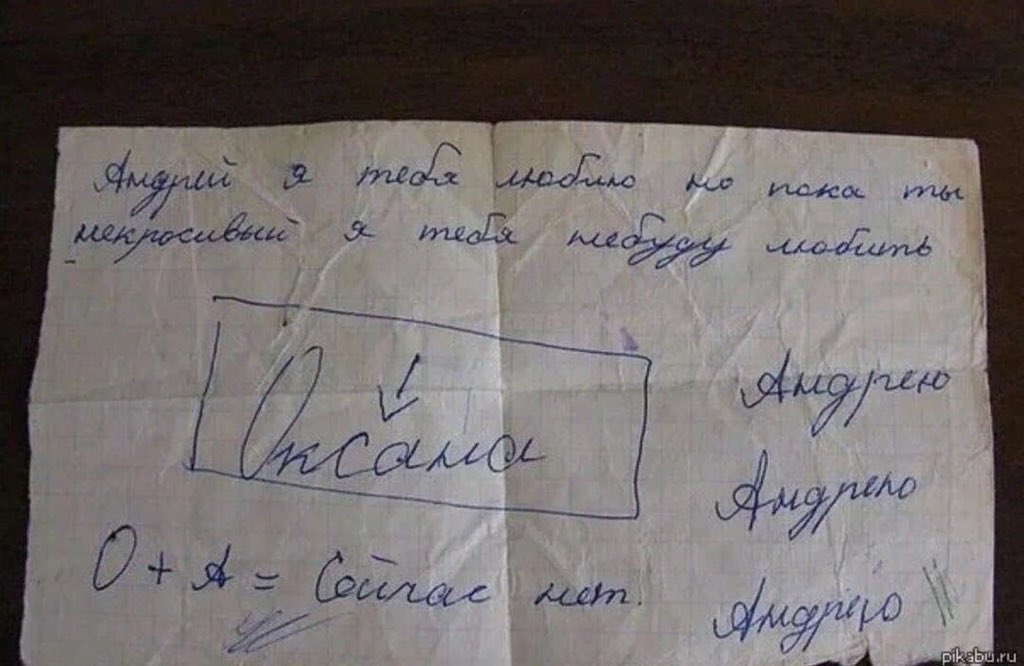 Андрей я тебя люблю но пока ты
некросивый я тебя небуду любить
Оксана
Андрею
Андрею
О + А = Сейчас нет.
Андрею
pikabu.ru